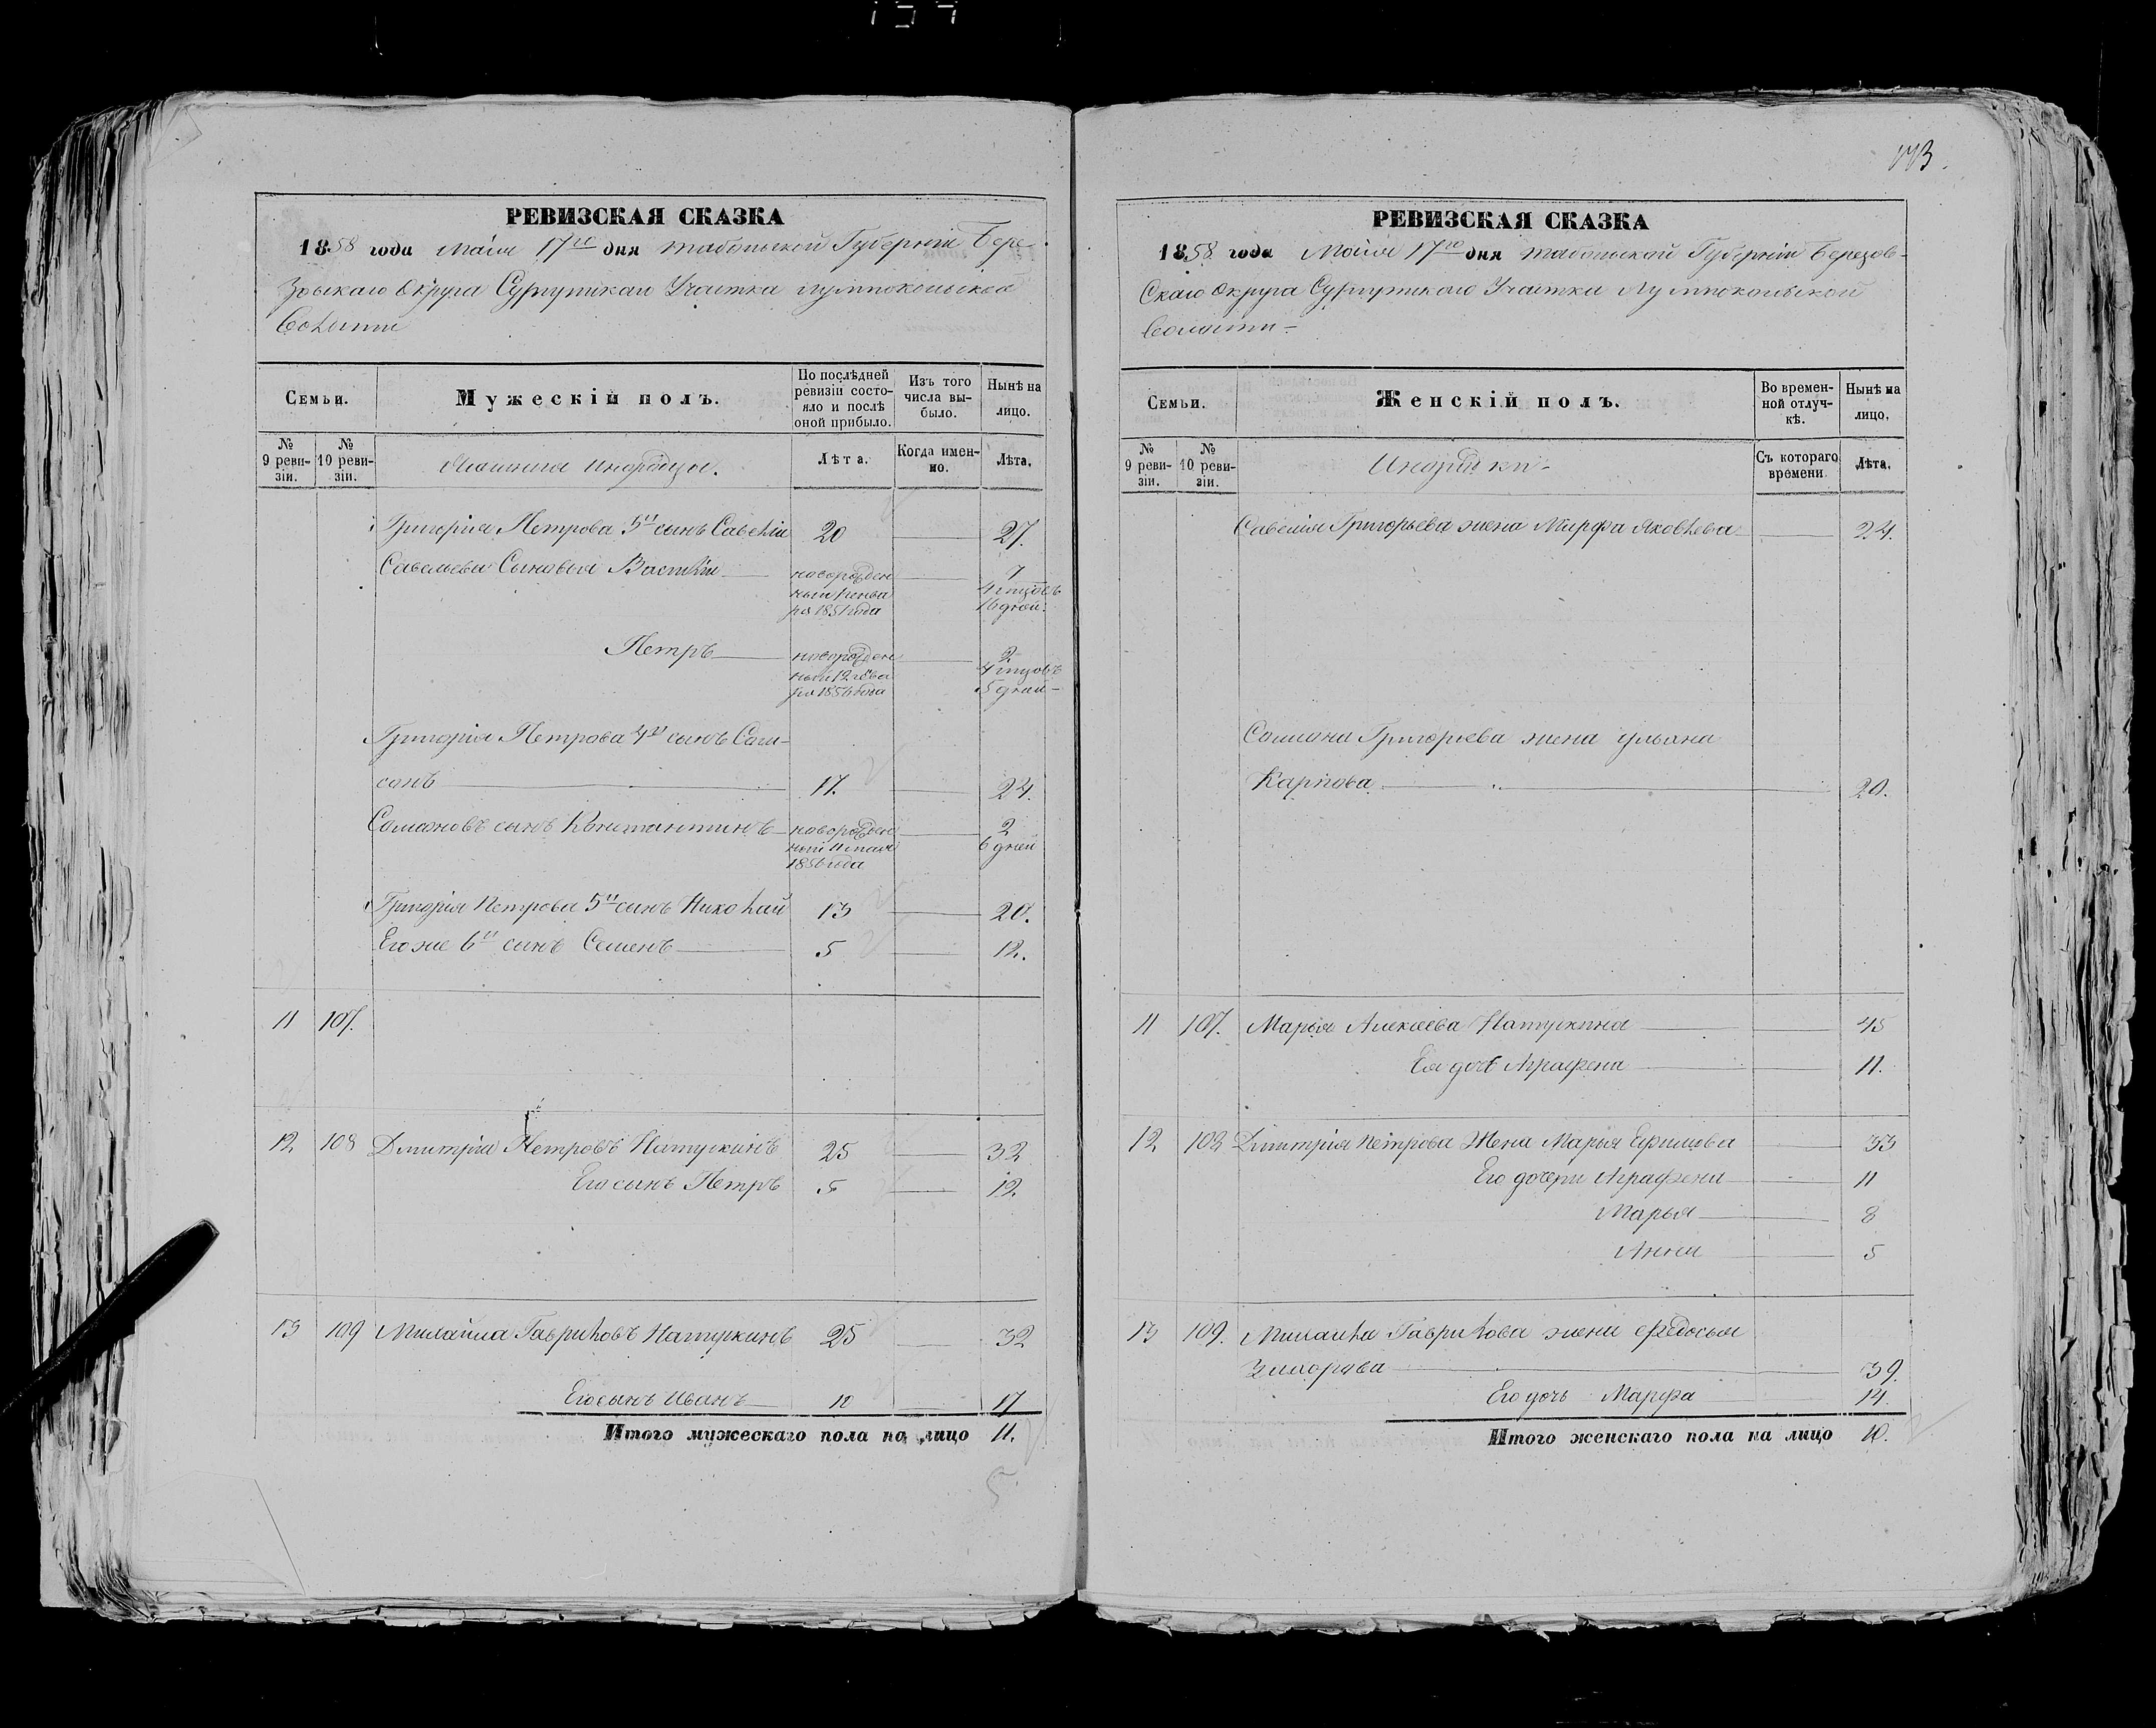 113.
РЕВИЗСКАЯ СКАЗКА
1858 года Маія 17го дня Тобольской Губерніи Бере-
зовскаго Округа Сургутскаго Участка Лумпокольской
Волости
Семьи.
Мужескій полъ.
По послѣдней ревизіи состояло и послѣ оной прибыло.
Изъ того числа выбыло.
Нынѣ на лицо.
№ 9 ревизіи.
№ 10 ревизіи.
инородцы.
Лѣта.
Когда именно.
Лѣта.
Григорія Петрова 3й сынъ Савелій 20 27.
Савельевы Сыновья Василій новорожден 7
ный Генва 4 мцовъ
ря 1851 года 16 дней.
Петръ новорожден 2
ный 12 Генва 4 мцовъ
ря 1856 года 5 дней
Григорія Петрова 4й сынъ Сам-
сонъ 17. 24.
Самсоновъ сынъ Константинъ новорожден 2
ный 11 маія 6 дней
1856 года
Григорія Петрова 5й сынъ Николай 13 20.
Его же 6й сынъ Семенъ 5 12.
11 107.
12 108 Дмитрій Петровъ Натускинъ 25 32
Его сынъ Петръ 5 12.
13 109 Михайла Гавриловъ Натускинъ 25 32
Его сынъ Иванъ 10 17
Итого мужескаго пола на лицо 11.
5
РЕВИЗСКАЯ СКАЗКА
1858 года Маія 17го дня Тобольской Губерніи Березов-
скаго Округа Сургутскаго Участка Лумпокольской
Волости
Семьи.
Женскій полъ.
Во временной отлучкѣ.
Нынѣ на лицо.
№ 9 ревизіи.
№ 10 ревизіи.
Инородки
Съ котораго времени
Лѣта.
Савелія Григорьева жена Марфа Яковлева 24.
Самсона Григорьева жена Ульяна
Карпова 20.
11 107. Марья Алексѣева Натускина 45
Ея дочь Аграфена 11.
12 108 Дмитрія Петрова Жена Марья Ефимова 33
Его дочери Аграфена 11
Марья 8
Анна 5
13 109. Михайла Гаврилова жена Федосья
39.
Его дочь Марфа 14.
Итого женскаго пола на лицо 10.